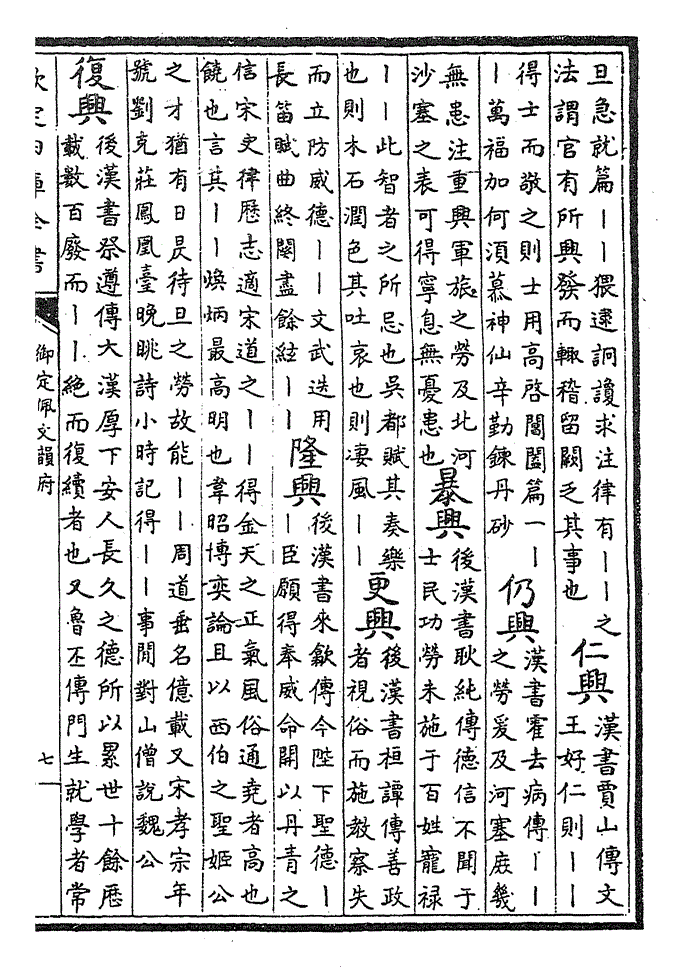 旦急就篇丨丨猥逮詗讂求注律有丨丨之
法謂官有所興發而輙稽留闕乏其事也
仁興
漢書賈山傳文
王好仁則丨丨
得士而敬之則士用高啓閶闔篇一丨
丨萬福加何湏慕神仙辛勤鍊丹砂
仍興
漢書霍去病傳丨丨
之勞爰及河塞庶幾
無患注重興軍旅之勞及北河
沙塞之表可得寧息無憂患也
暴興
後漢書耿純傳德信不聞于
士民功勞未施于百姓寵禄
丨丨此智者之所忌也吳都賦其奏樂
也則木石潤色其吐哀也則凄風丨丨
更興
後漢書桓譚傳善政
者視俗而施教察失
而立防威德丨丨文武迭用
長笛賦曲終闋盡餘絃丨丨
隆興
後漢書來歙傳今陛下聖德丨
丨臣願得奉威命開以丹青之
信宋史律歷志適宋道之丨丨得金天之正氣風俗通堯者高也
饒也言其丨丨煥炳最高明也韋昭博奕論且以西伯之聖姬公
之才猶有日昃待旦之勞故能丨丨周道垂名億載又宋孝宗年
號劉克莊鳳凰臺晚眺詩小時記得丨丨事閒對山僧說魏公
復興
後漢書祭遵傳大漢厚下安人長久之德所以累世十餘歷
載數百廢而丨丨絕而復續者也又魯丕傳門生就學者常
欽定四庫全書
御定佩文韻府
七